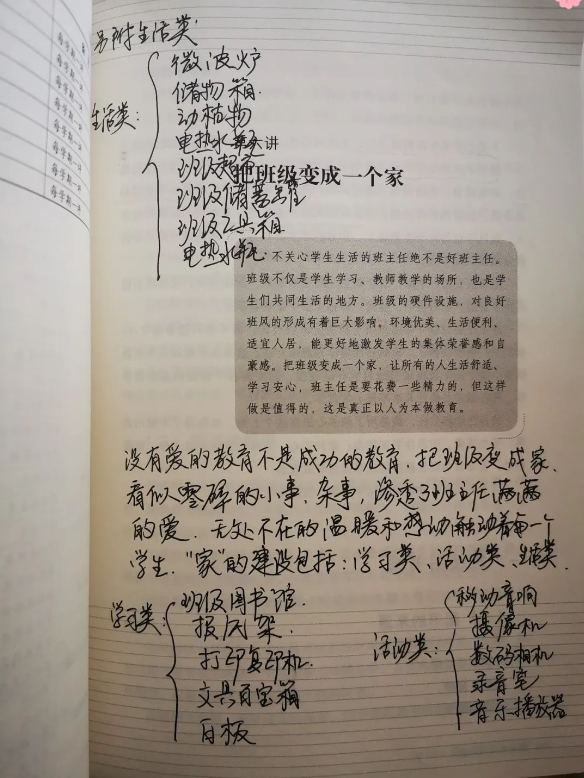 另附生活类:
每学期一
每学期一
每学期一
每学期一
每学期一
每学期一
每学期一
每学期一
生活类:
微波炉
储物箱
动植物
电热水瓶
第六讲
把班级变成一个家
班级储蓄罐
班级工具箱
电热水瓶
不关心学生生活的班主任绝不是好班主任。
班级不仅是学生学习、教师教学的场所,也是学
生们共同生活的地方。班级的硬件设施,对良好
班风的形成有着巨大影响。环境优美、生活便利、
适宜人居,能更好地激发学生的集体荣誉感和自
豪感。把班级变成一个家,让所有的人生活舒适、
学习安心,班主任是要花费一些精力的,但这样
做是值得的,这是真正以人为本做教育。
没有爱的教育不是成功的教育,把班级变成家,
看似零碎的小事、杂事,渗透了班主任满满
的爱,无处不在的温暖和感动触动着每一个
学生,“家”的建设包括:学习类、活动类、生活类.
学习类:
班级图书馆.
报风架.
打印复印机.
文具百宝箱
白板
活动类:
移动音响
摄像机
数码相机
录音笔
音乐播放器